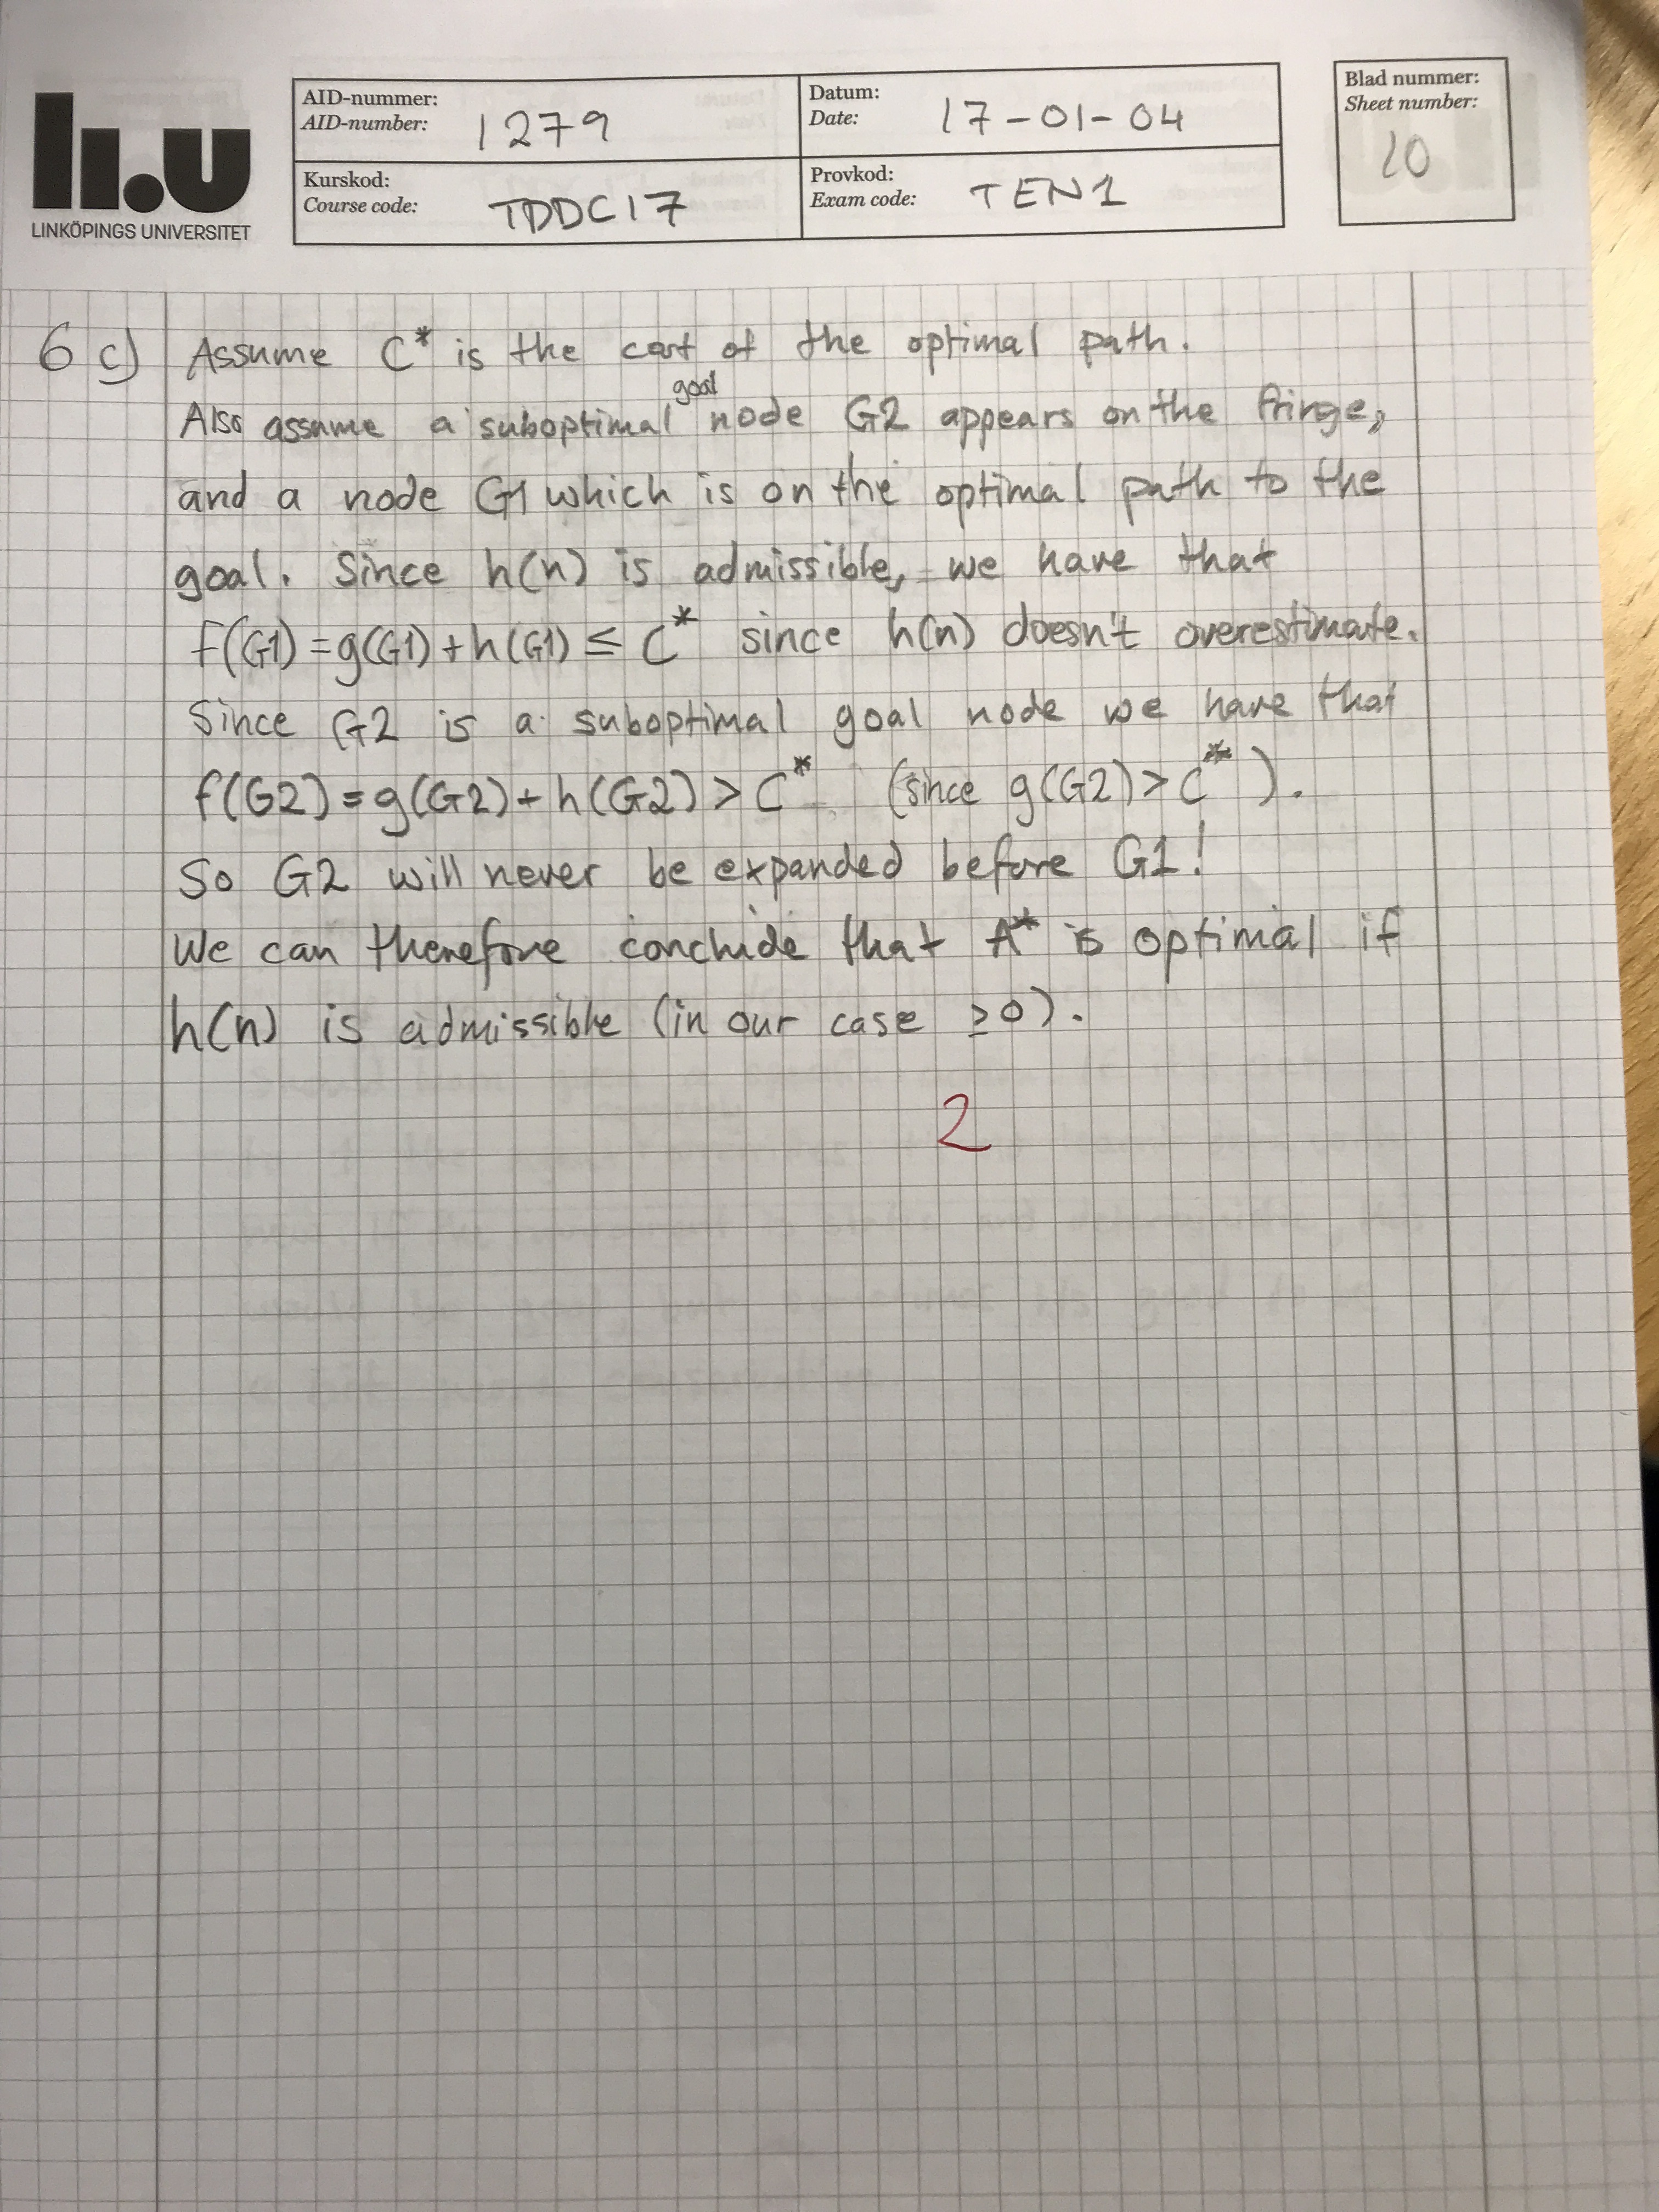 li.u
LINKÖPINGS UNIVERSITET
AID-nummer:
AID-number: 1279
Datum:
Date: 17-01-04
Blad nummer:
Sheet number:
10
Kurskod:
Course code: TDDC17
Provkod:
Exam code: TEN1
6 c) Assume C* is the cost of the optimal path.
Also assume a suboptimal goal node G2 appears on the fringe,
and a node G1 which is on the optimal path to the
goal. Since h(n) is admissible, we have that
f(G1) = g(G1) + h(G1) ≤ C* since h(n) doesn't overestimate.
Since G2 is a suboptimal goal node we have that
f(G2) = g(G2) + h(G2) > C* (since g(G2) > C*).
So G2 will never be expanded before G1!
We can therefore conclude that A* is optimal if
h(n) is admissible (in our case ≥0).
2